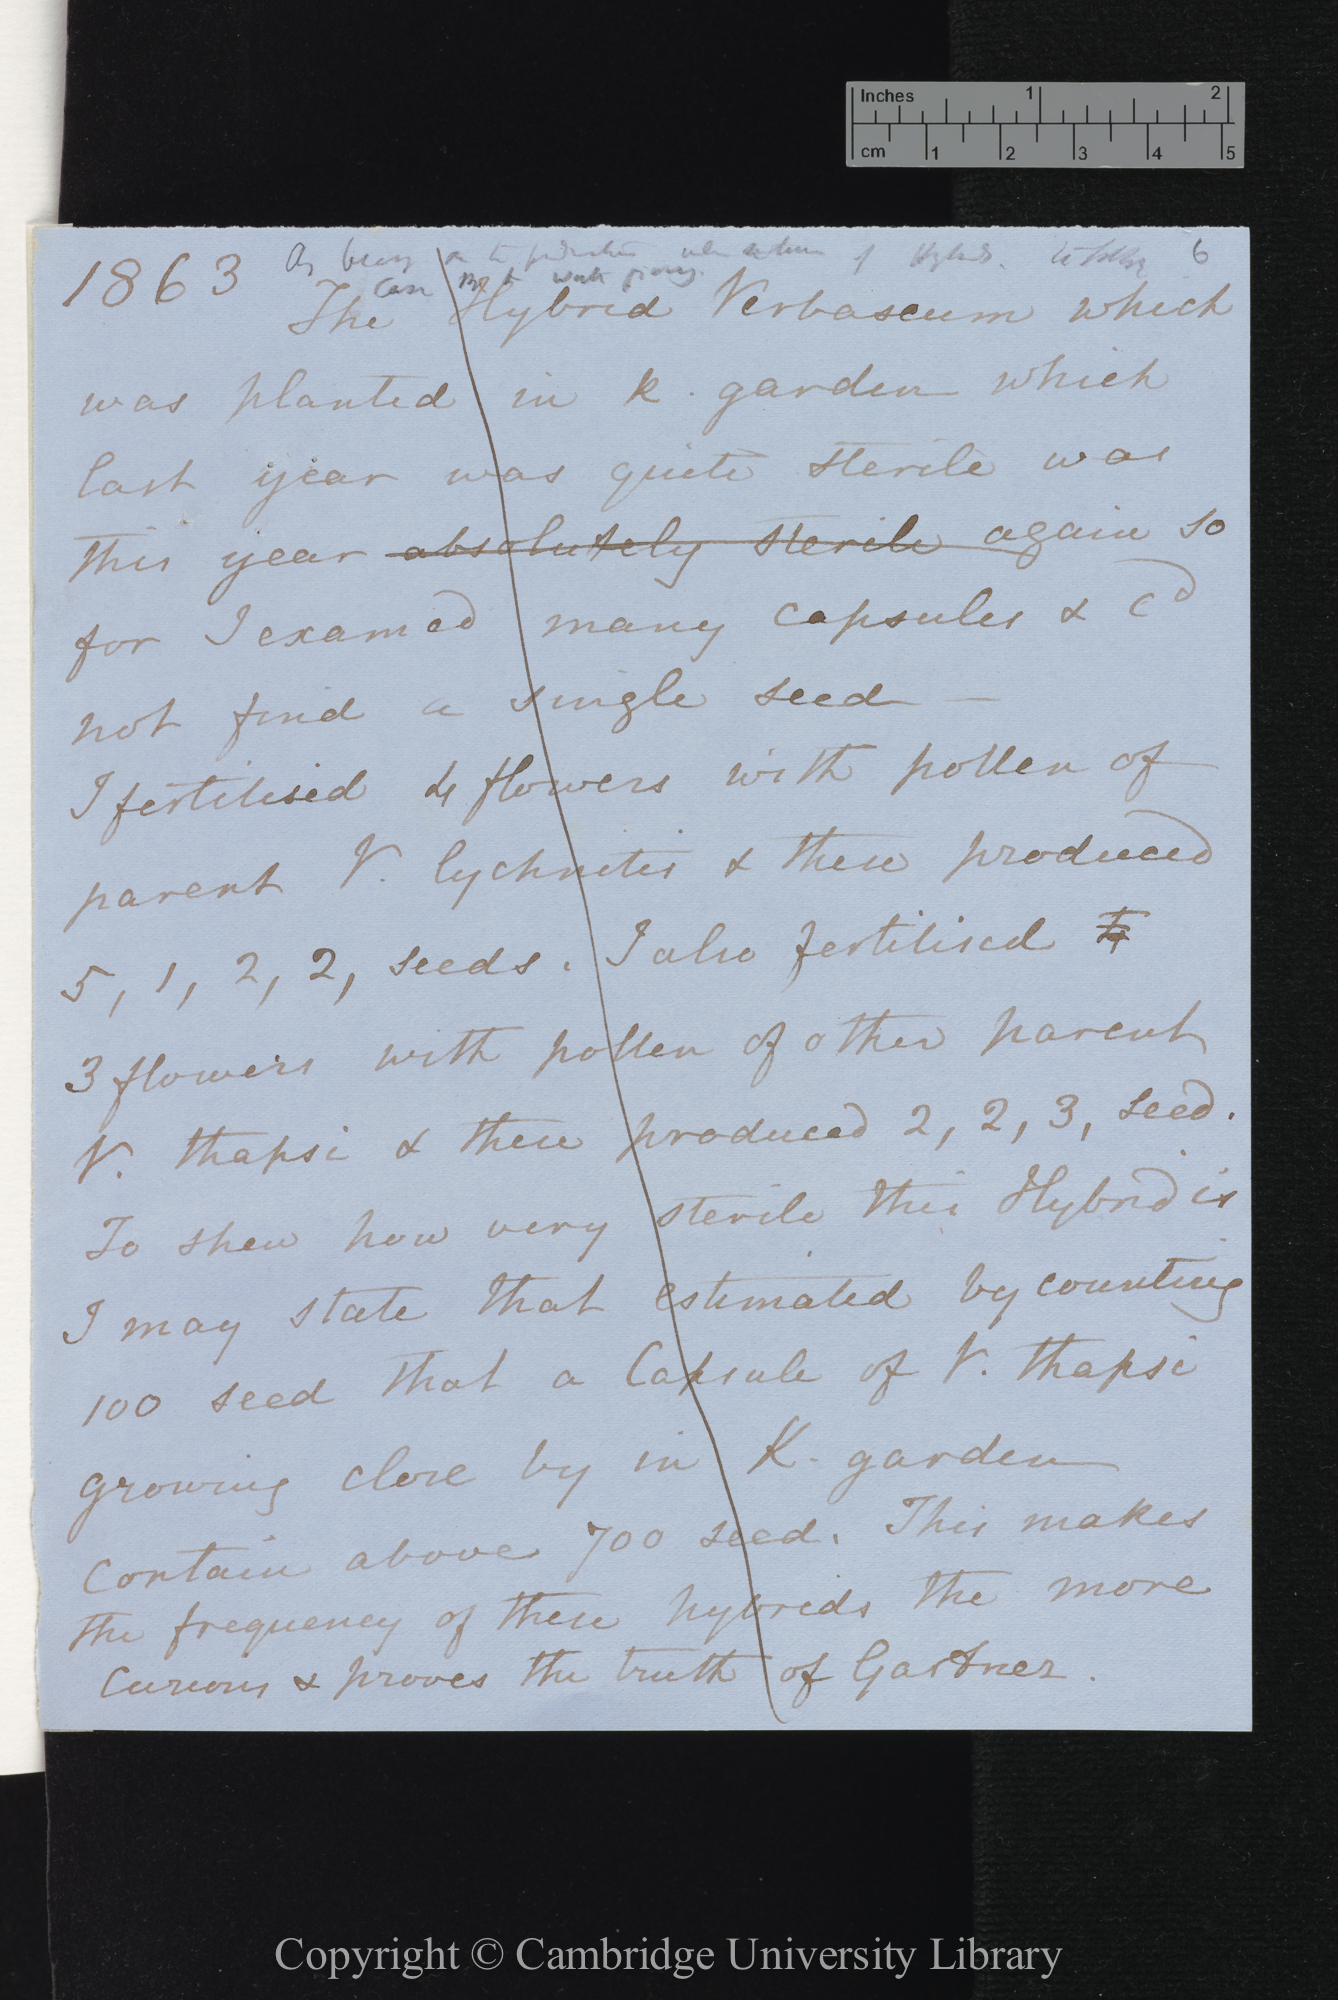 Inches 1 2
cm 1 2 3 4 5
1863 As of Hybrids. 6
Case
The Hybrid Verbascum which
was planted in K. garden which
last year was quite sterile was
this year absolutely sterile again so
for I examed many capsules & cd
not find a single seed —
I fertilised 4 flowers with pollen of
parent V. lychnitis & these produced
5, 1, 2, 2, seeds. I also fertilised
3 flowers with pollen of other parent
V. thapsi & these produced 2, 2, 3, seed.
To shew how very sterile this Hybrid is
I may state that estimated by counting
100 seed that a Capsule of V. thapsi
growing close by in K. garden
contain above 700 seed. This makes
the frequency of these hybrids the more
curious & proves the truth of Gartner.
Copyright © Cambridge University Library